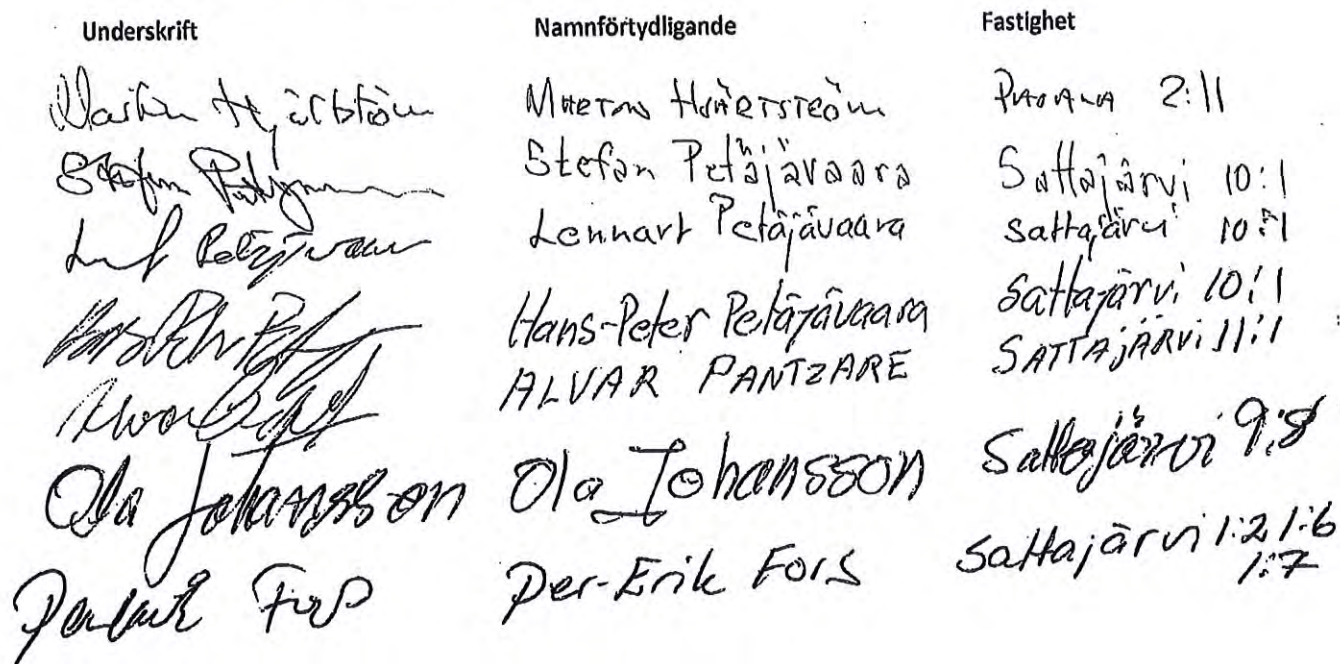 Underskrift Namnförtydligande Fastighet
Martin Hjärtström MARTIN HJÄRTSTRÖM PAJALA 2:11
Stefan Stefan Petäjävaara Sattajärvi 10:1
Petäjävaara Lennart Petäjävaara Sattajärvi 10:1
Hans-Peter Petäjävaara Sattajärvi 10:1
ALVAR PANTZARE SATTAJÄRVI 11:1
Ola Johansson Ola Johansson Sattajärvi 9:8
Fors Per-Erik Fors Sattajärvi 1:2, 1:6
1:7